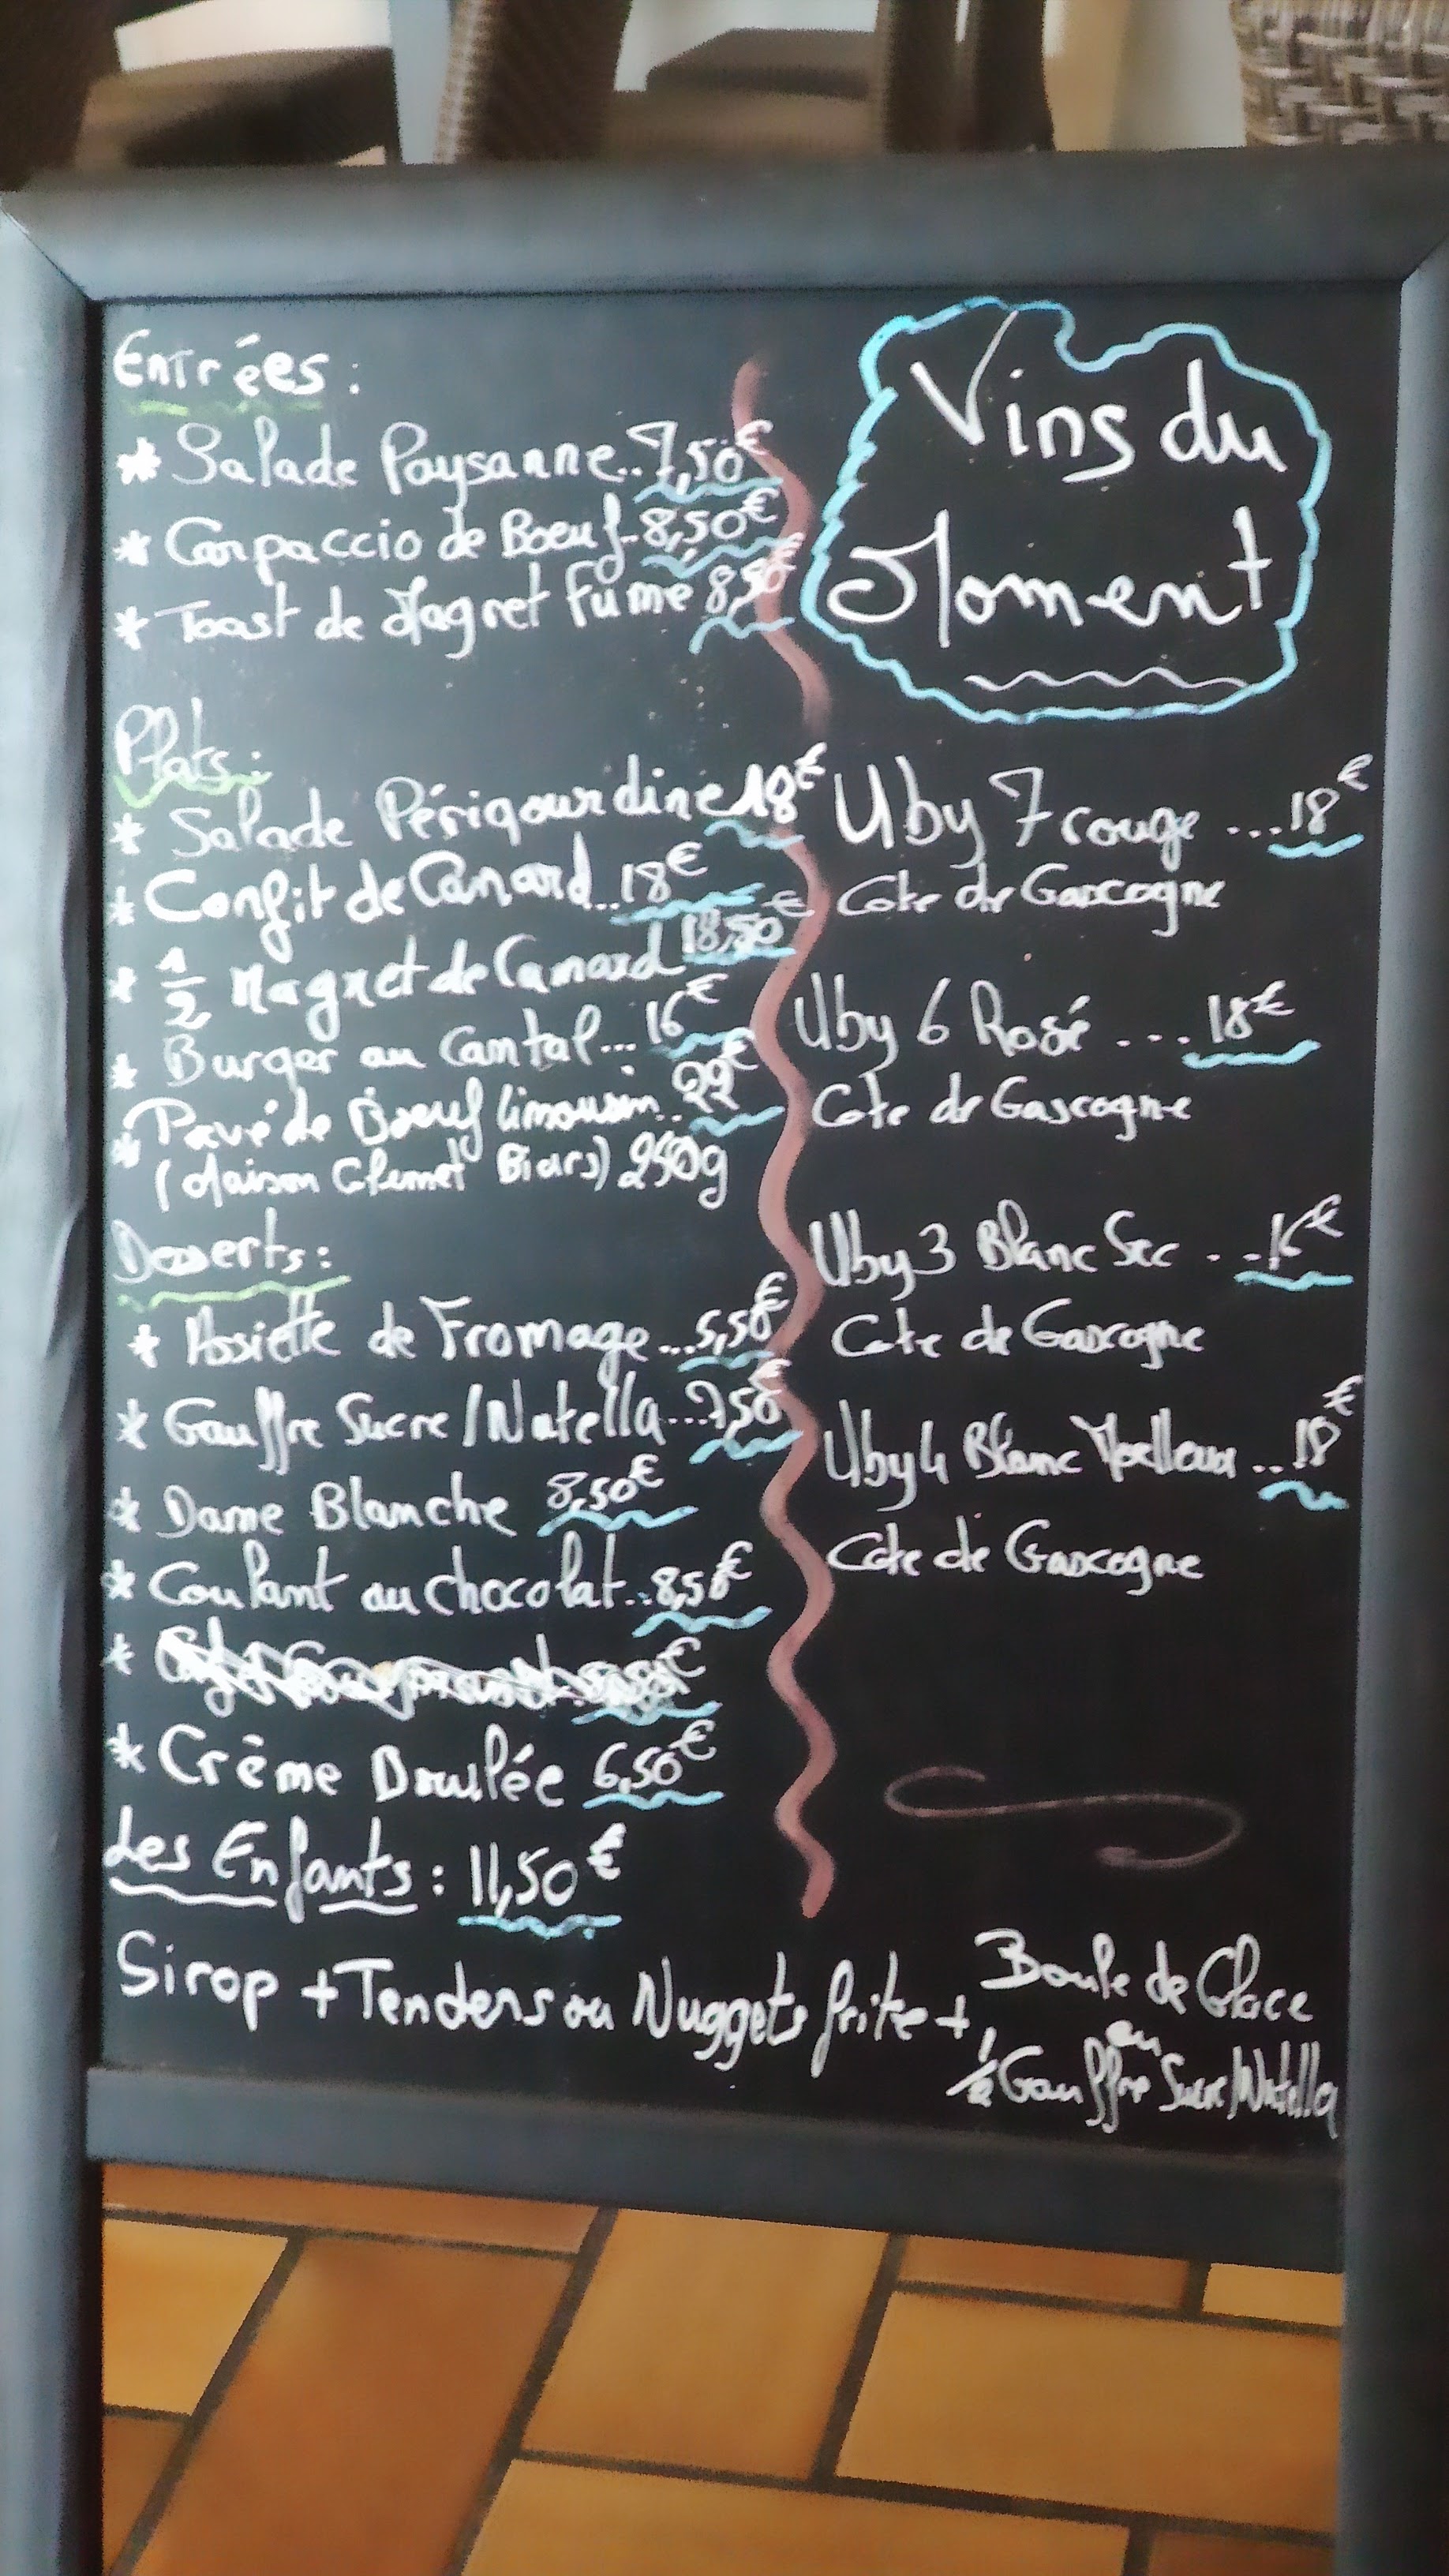 Entrées :
* Salade Paysanne..7,50€
* Carpaccio de Boeuf..8,50€
* Toast de Magret fumé 8,50€
Plats :
* Salade Périgourdine 18€
* Confit de Canard...18€
* 1/2 Magret de Canard 18,50€
* Burger au Cantal... 16€
* Pavé de Boeuf limousin.. 22€
(Maison Clemet Biars) 250g
Desserts :
* Assiette de Fromage...5,50€
* Gauffre Sucre/Nutella...7,50€
* Dame Blanche 8,50€
* Coulant au chocolat...8,50€
*
* Crème Brulée 6,50€
Les Enfants : 11,50€
Sirop + Tenders ou Nuggets frite + Boule de Glace
ou
1/2 Gauffre Sucre/Nutella
Vins du
Moment
Uby 7 rouge ...18€
Cote de Gascogne
Uby 6 Rosé ....18€
Cote de Gascogne
Uby 3 Blanc Sec ...16€
Cote de Gascogne
Uby 4 Blanc Moelleux ...18€
Cote de Gascogne